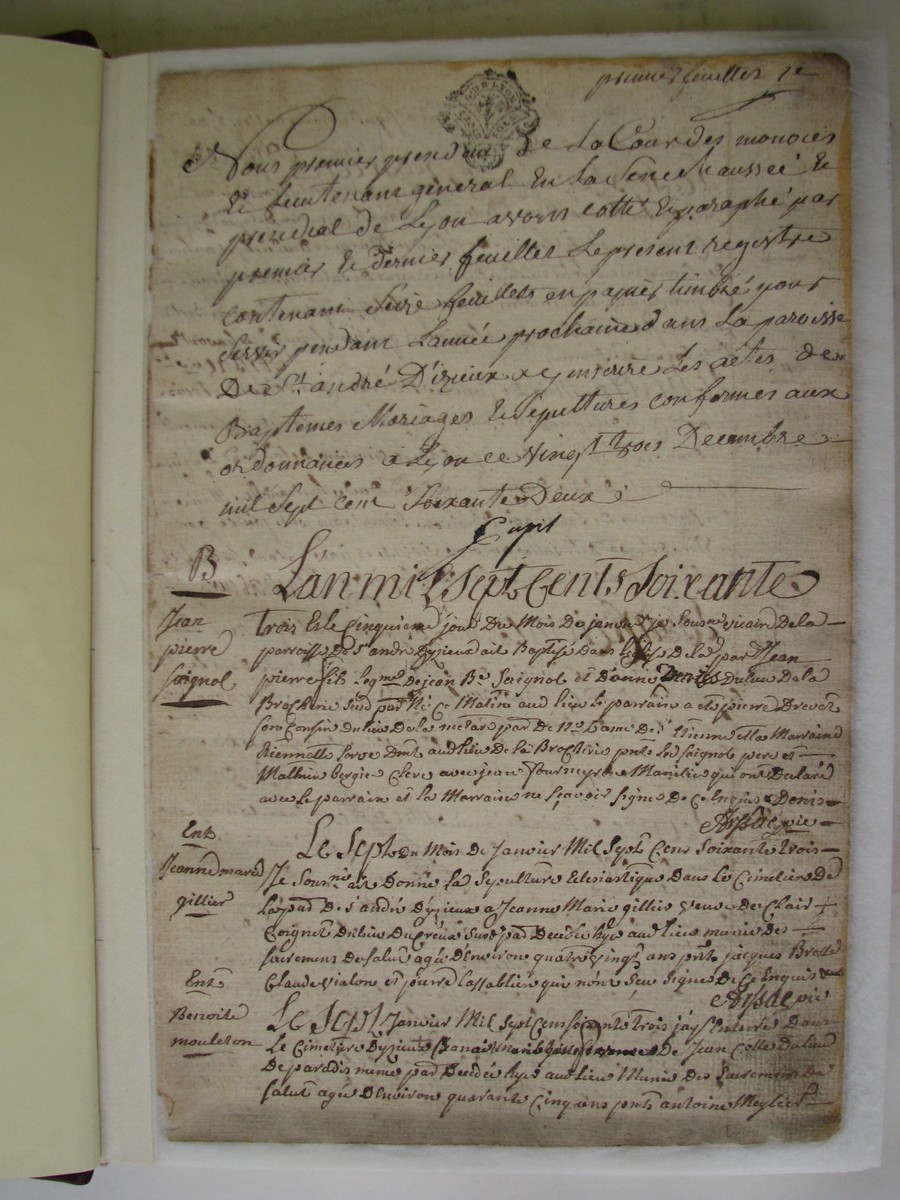 premier feuillet 1e
GEN. LYON
Nous premier president de La Cour des monoies
Et Lieutenant general En La Senechaussée Et
presidial de Lyon avons cotté Et paraphé par
premier Et dernier feuillet Le present registre
contenant Seize feuillets en papier timbré pour
Servir pendant Lannée prochaine dans La paroisse
De St andré D'izieux a y inscrire Les actes de
Baptemes Mariages Et Sepultures conformes aux
ordonnances à Lyon ce vingt trois Decembre
mil Sept cent Soixante Deux
Pupil
B
Lan mil Sept Cents Soixante
Jean
pierre
Saignol
trois Et le Cinquieme jour Du Mois De janvier je Sousné vicaire De la
parroisse De St andré Dyzieux ait Baptisé Dans Leglise De lad par Jean
pierre fils Legme De jean Bte Saignol Et D'anne Denis Du lieu De la
Brocherie Susd par Né Ce Matin aud lieu Le parrain a eté pierre Drevet
Son Cousin Du lieu De la par De De St Etienne Et la Marraine
audlieu De la Brocherie pnts led Saignol pere et
Mathieu bergier Clerc avec jean fourneyron qui ont Declaré
avec Le parrain et la Marraine ne Sçavoir Signe De Ce Enquis Denis
Arssac vic
Ent
Jeanne marie
gillier
Le Sept Du Mois De Janvier Mil Sept Cens Soixante trois
Je Sousné ait Donné la Sepulture Eclesiastique Dans le Cimetiere De
La par De St andré Dyzieux a Jeanne Marie gillier veuve De Clair
Coignet Du lieu Du Creux Susd par Decedée hyer aud lieu munie des
Sacremens De Salut agée D'environ quatre vingt ans pnts jacques
Claude vialon et pierre Lassablière qui n'ont Sçeu Signe De Ce Enquis
Arssac vic
Ent
Benoite
mouleton
Le Sept Janvier Mil Sept Cens Soixante trois j'ay Enterré Dans
Le Cimetiere Dyzieux De Jean Collet Du lieu
De paradis meme par Decedée hyer aud lieu Munie Des Sacremens De
Salut agée D'environ quarante Cinq ans pnts antoine Meylier